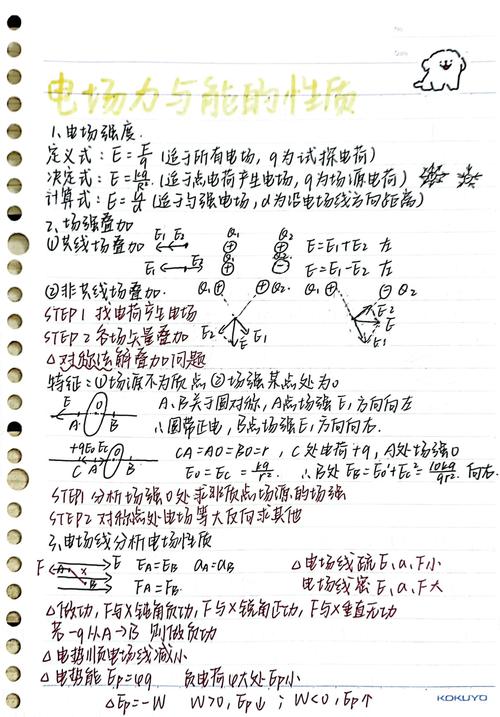 No.
Date
电场力与能的性质
1、电场强度.
定义式：E=F/q（适于所有电场，q为试探电荷）
决定式：E=kq/r²（适于点电荷产生电场，q为场源电荷）
计算式：E=U/d（适于匀强电场，d为沿电场线方向距离）
2、场强叠加
①共线场叠加 E₁ E₂ Q₁ ⊕ Q₂ ⊕ E=E₁+E₂ 左
E₁ E₂ ⊕ ⊖ E=E₁-E₂ 左
②非共线场叠加. Q₁⊕ ⊕Q₂ Q₁⊕ ⊖Q₂
STEP1 找电荷产生电场
STEP2 各场矢量叠加 E₂ E E₁ E₂ E E₁
△对称法解叠加问题
特征：①场源不为质点 ②场强某点处为0
E A O B A、B关于圆对称，A点场强E，方向向左
∴圆带正电，B点场强E，方向向右.
+q E₀ E_C C A B CA=AO=BO=r，C处电荷+q，A处场强0
E₀=E_C=kq/r². ∴B处E_B=E₀'+E_C'=10kq/9r² 向右.
STEP1 分析场强0处求非质点场源的场强
STEP2 对称点处电场等大反向求其他
3、电场线分析电场性质
F A x B E E_A=E_B a_A=a_B △电场线疏E、a、F小
F_A=F_B 电场线密E、a、F大
△做功，F与X钝角负功，F与X锐角正功，F与X垂直无功
若-q从A→B 则做负功
△电势顺电场线减小
△电势能Ep=φq 负电荷φ大处Ep小
△Ep=-W W>0，Ep↓；W<0，Ep↑
KOKUYO